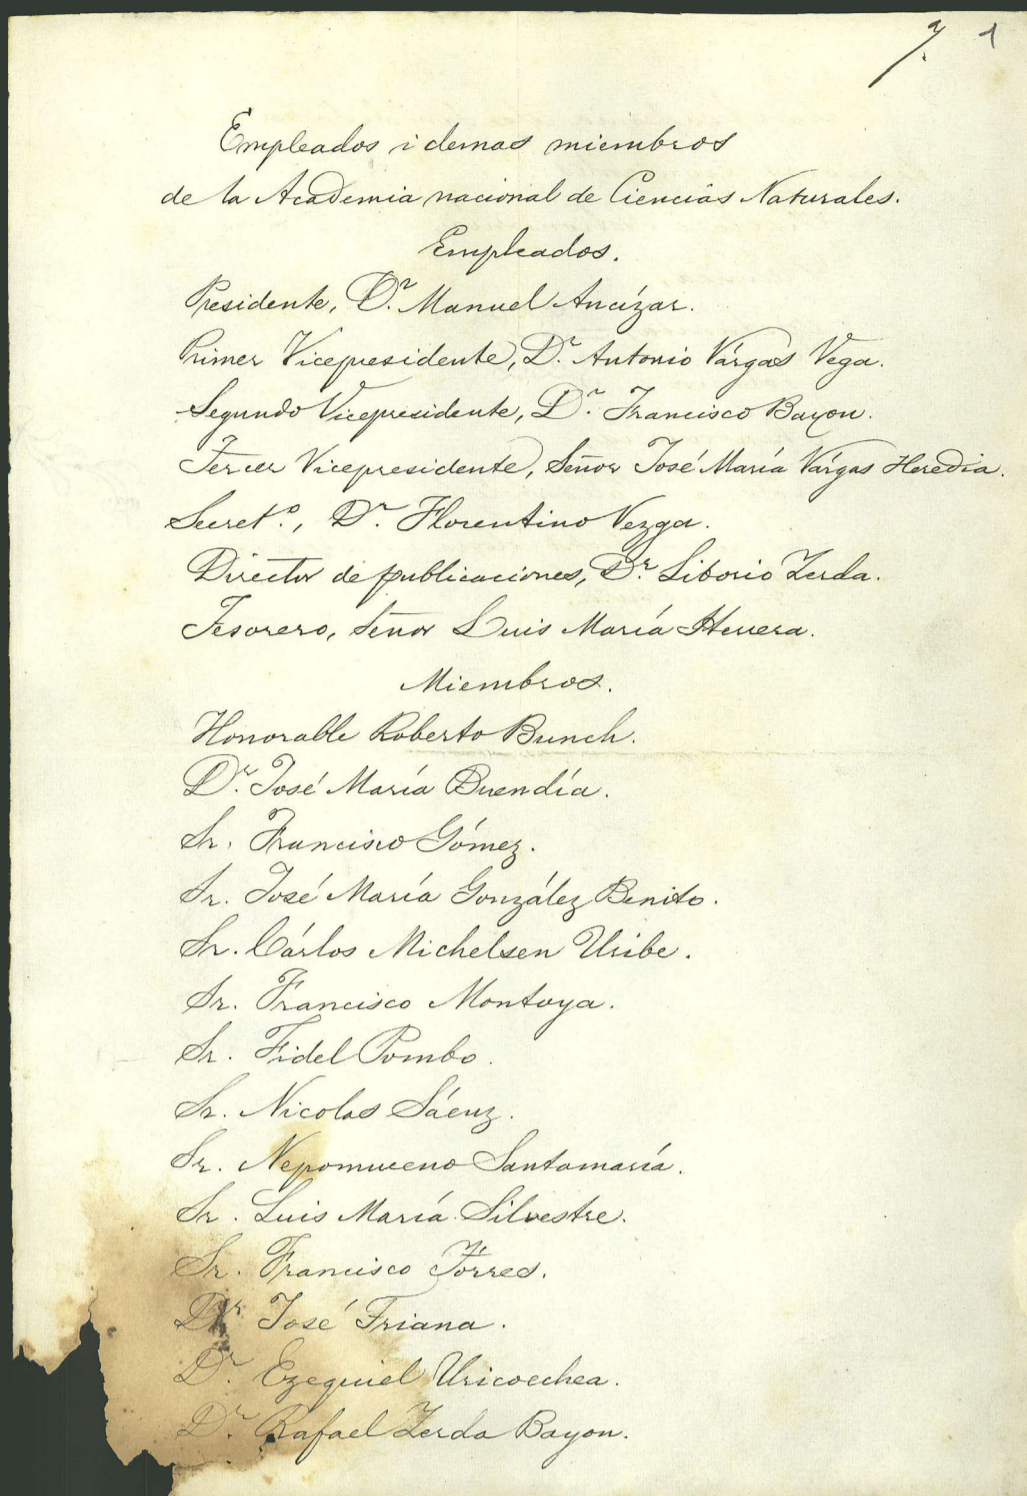 1
Empleados i demas miembros
de la Academia nacional de Ciencias Naturales.
Empleados.
Presidente, Dr. Manuel Ancízar.
Primer Vicepresidente, Dr. Antonio Várgas Vega.
Segundo Vicepresidente, Dr. Francisco Bayon.
Tercer Vicepresidente, Señor José María Várgas Heredia.
Secret.º, Dr. Florentino Vezga.
Director de publicaciones, Dr. Liborio Zerda.
Tesorero, Señor Luis María Herrera.
Miembros.
Honorable Roberto Bunch.
Dr. José María Buendía.
Sr. Francisco Gómez.
Sr. José María González Benito.
Sr. Cárlos Michelsen Uribe.
Sr. Francisco Montoya.
Sr. Fidel Pombo.
Sr. Nicolas Sáenz.
Sr. Nepomuceno Santamaría.
Sr. Luis María Silvestre.
Sr. Francisco Tórres.
Dr. José Triana.
Dr. Ezequiel Uricoechea.
Dr. Rafael Zerda Bayon.